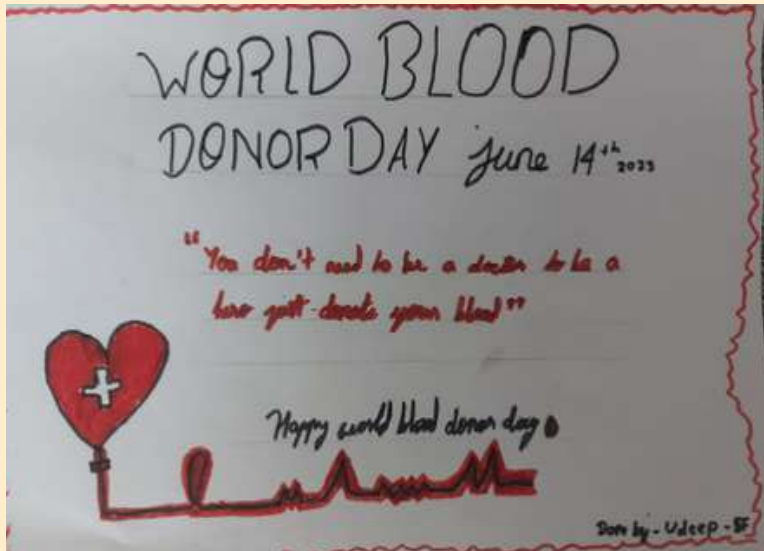 WORLD BLOOD
DONOR DAY june 14th 2023
"You don't need to be a doctor to be a
hero just donate your blood"
Happy world blood donor day
Done by - Udeep - 8F